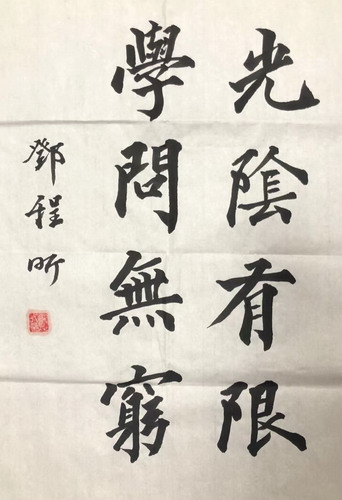 光陰有限
學問無窮
鄧程昕